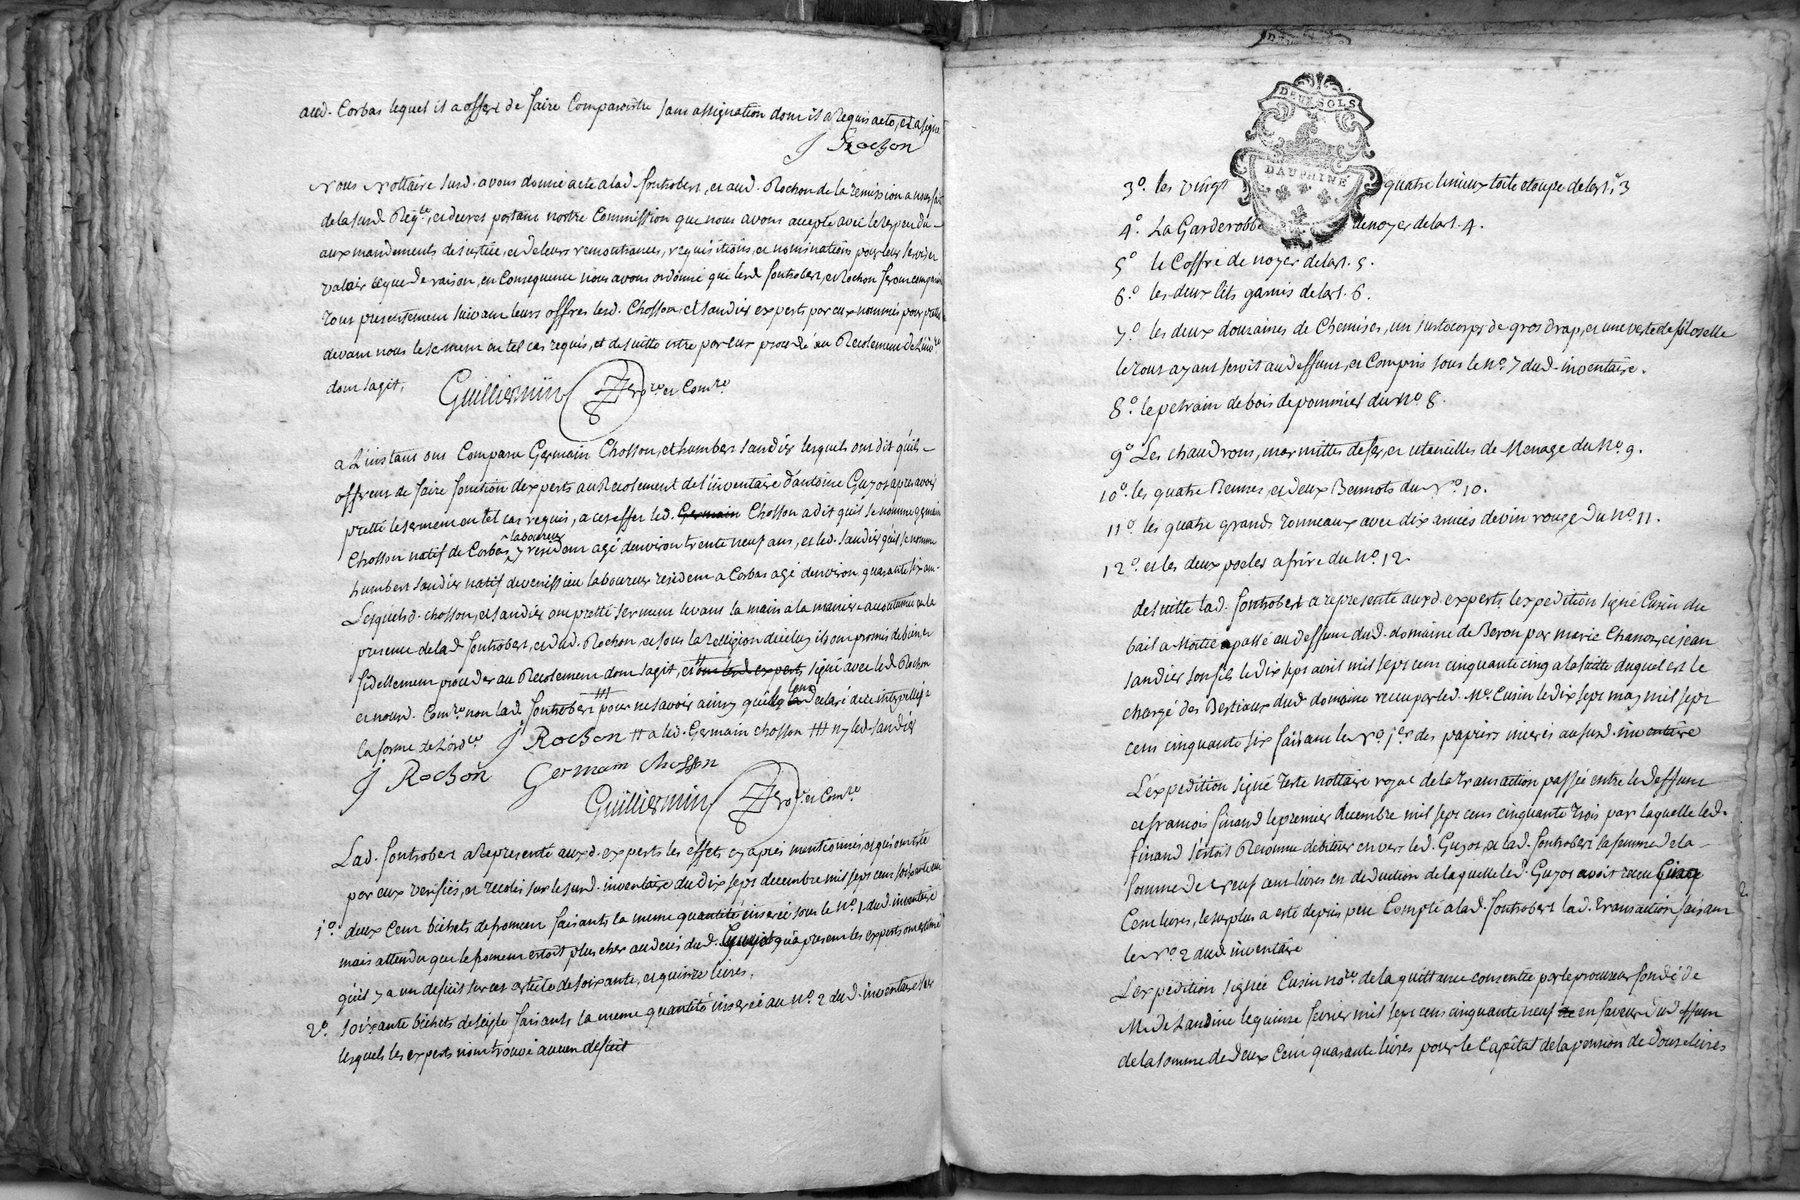 aud. Corbas lequel il a offert de faire Comparoitre sans assignation dont il a Requis acte, et a signé
J Rochon
Nous Nottaire susd. avons donné acte a lad. fontrobert, et aud. Rochon de la remission a nous
de la susd. Reqte, et decret portant nostre Commission que nous avons accepté avec le respect du
aux mandements de justice, et de leurs remontrances, requisitions, et nominations pour leur servir
valoir ce que de raison, en Consequence nous avons ordonné que lesd fontrobert, et Rochon feront
tout presentement suivant leurs offres lesd. Chosson, et sandier experts par eux nommés pour
devant nous le serment en tel cas requis, et de suitte estre par eux procedé au Recolement de
dont s'agit,
Guilliermin Nore et Comre
a L'instant ont Comparu Germain Chosson, et humbert sandier lesquels ont dit qu'ils
offrent de faire fonction d'experts au Recolement de l'inventaire d'antoine Guyot apres avoir
pretté le serment en tel cas requis, a cet effet led. Germain Chosson a dit qu'il se nomme germain
laboureur
Chosson natif de Corbas y resident agé d'environ trente neuf ans, et led. sandier qu'il se nomme
humbert sandier natif de venissieu laboureur resident a Corbas agé d'environ quarante six ans
Lesquels d. chosson, et sandier ont pretté serment levant la main a la maniere accoutumée en la
presence de lad. fontrobert, et dud. Rochon et sous la Relligion d'icelluy ils ont promis de bien, et
fidellement proceder au Recolement dont s'agit, et ont lesd experts signé avec led. Rochon
et nousd. Comre non lad. fontrobert pour ne savoir ainsy declaré de ce interpellé
la forme de L'ordce J Rochon H a led. Germain chosson HH ny led. sandier
J Rochon Germain chosson
Guilliermin Nore et Comre
Lad. fontrobert a Representé auxd. experts les effets cy apres mentionnés, et qui ont été
par eux verifiés, et recolés sur le susd. inventaire du dix sept decembre mil sept cent soixante
1°. deux Cent bichets de froment faisants la meme quantité inserée sous le No. 1. dud. inventaire
mais attendu que le froment estoit plus cher au decés dud. qu'a present les experts ont estimé
qu'il y a un deficit sur cet article de soixante, et quinze livres,
2°. soixante bichets de seigle faisants la meme quantité inserée au No. 2 dud. inventaire sur
lesquels les experts n'ont trouvé aucun deficit
DEUX SOLS
DAUPHINÉ
3°. les vingt quatre linceux toile etoupe de lart. 3
4°. La Garderobbe de noyer de lart. 4.
5° le Coffre de noyer de lart. 5.
6°. les deux lits garnis de lart. 6.
7°. les deux douzaines de Chemises, un justecorps de gros drap, et une veste de filoselle
le tout ayant servit au deffunt, et Compris sous le No. 7 dud. inventaire.
8°. le petrain de bois de pommier du No 8.
9° Les chaudrons, marmittes de fer, et utencilles de Menage du No. 9.
10°. les quatre Bennes, et deux Bennots du No. 10.
11°. les quatre grands tonneaux avec dix années de vin rouge du No. 11.
12°. et les deux poeles a frire du No. 12.
de suitte lad. fontrobert a representé auxd. experts l'expedition signé Cusin du
bail a Moitié passé au deffunt dud. domaine de Beron par marie Chanoz, et jean
sandier son fils le dix sept avril mil sept cent cinquante cinq a la suitte duquel est le
chargé des Bestiaux dud. domaine recu par led. Me. Cusin le dix sept may mil sept
cent cinquante six faisant le No. 1er des papiers inserés au susd. inventaire
L'expedition signé Teste nottaire royal de la transaction passée entre le deffunt
et francois finand le premier decembre mil sept cent cinquante trois par laquelle led.
finand s'estoit Reconnu debiteur envers led. Guyot, et lad. fontrobert sa femme de la
somme de Neuf cent livres en deduction de laquelle led. Guyot avoit recu Cinq
Cent livres, le surplus a esté depuis peu Compté a lad. fontrobert lad. transaction faisant
le No 2 dud. inventaire
L'expedition signée Cusin nore. de la quittance consentie par le procureur fondé de
M. de Landine le quinze fevrier mil sept cent cinquante neuf en faveur dud deffunt
de la somme de deux Cent quarante livres pour le Capital de la pension de douze livres
2